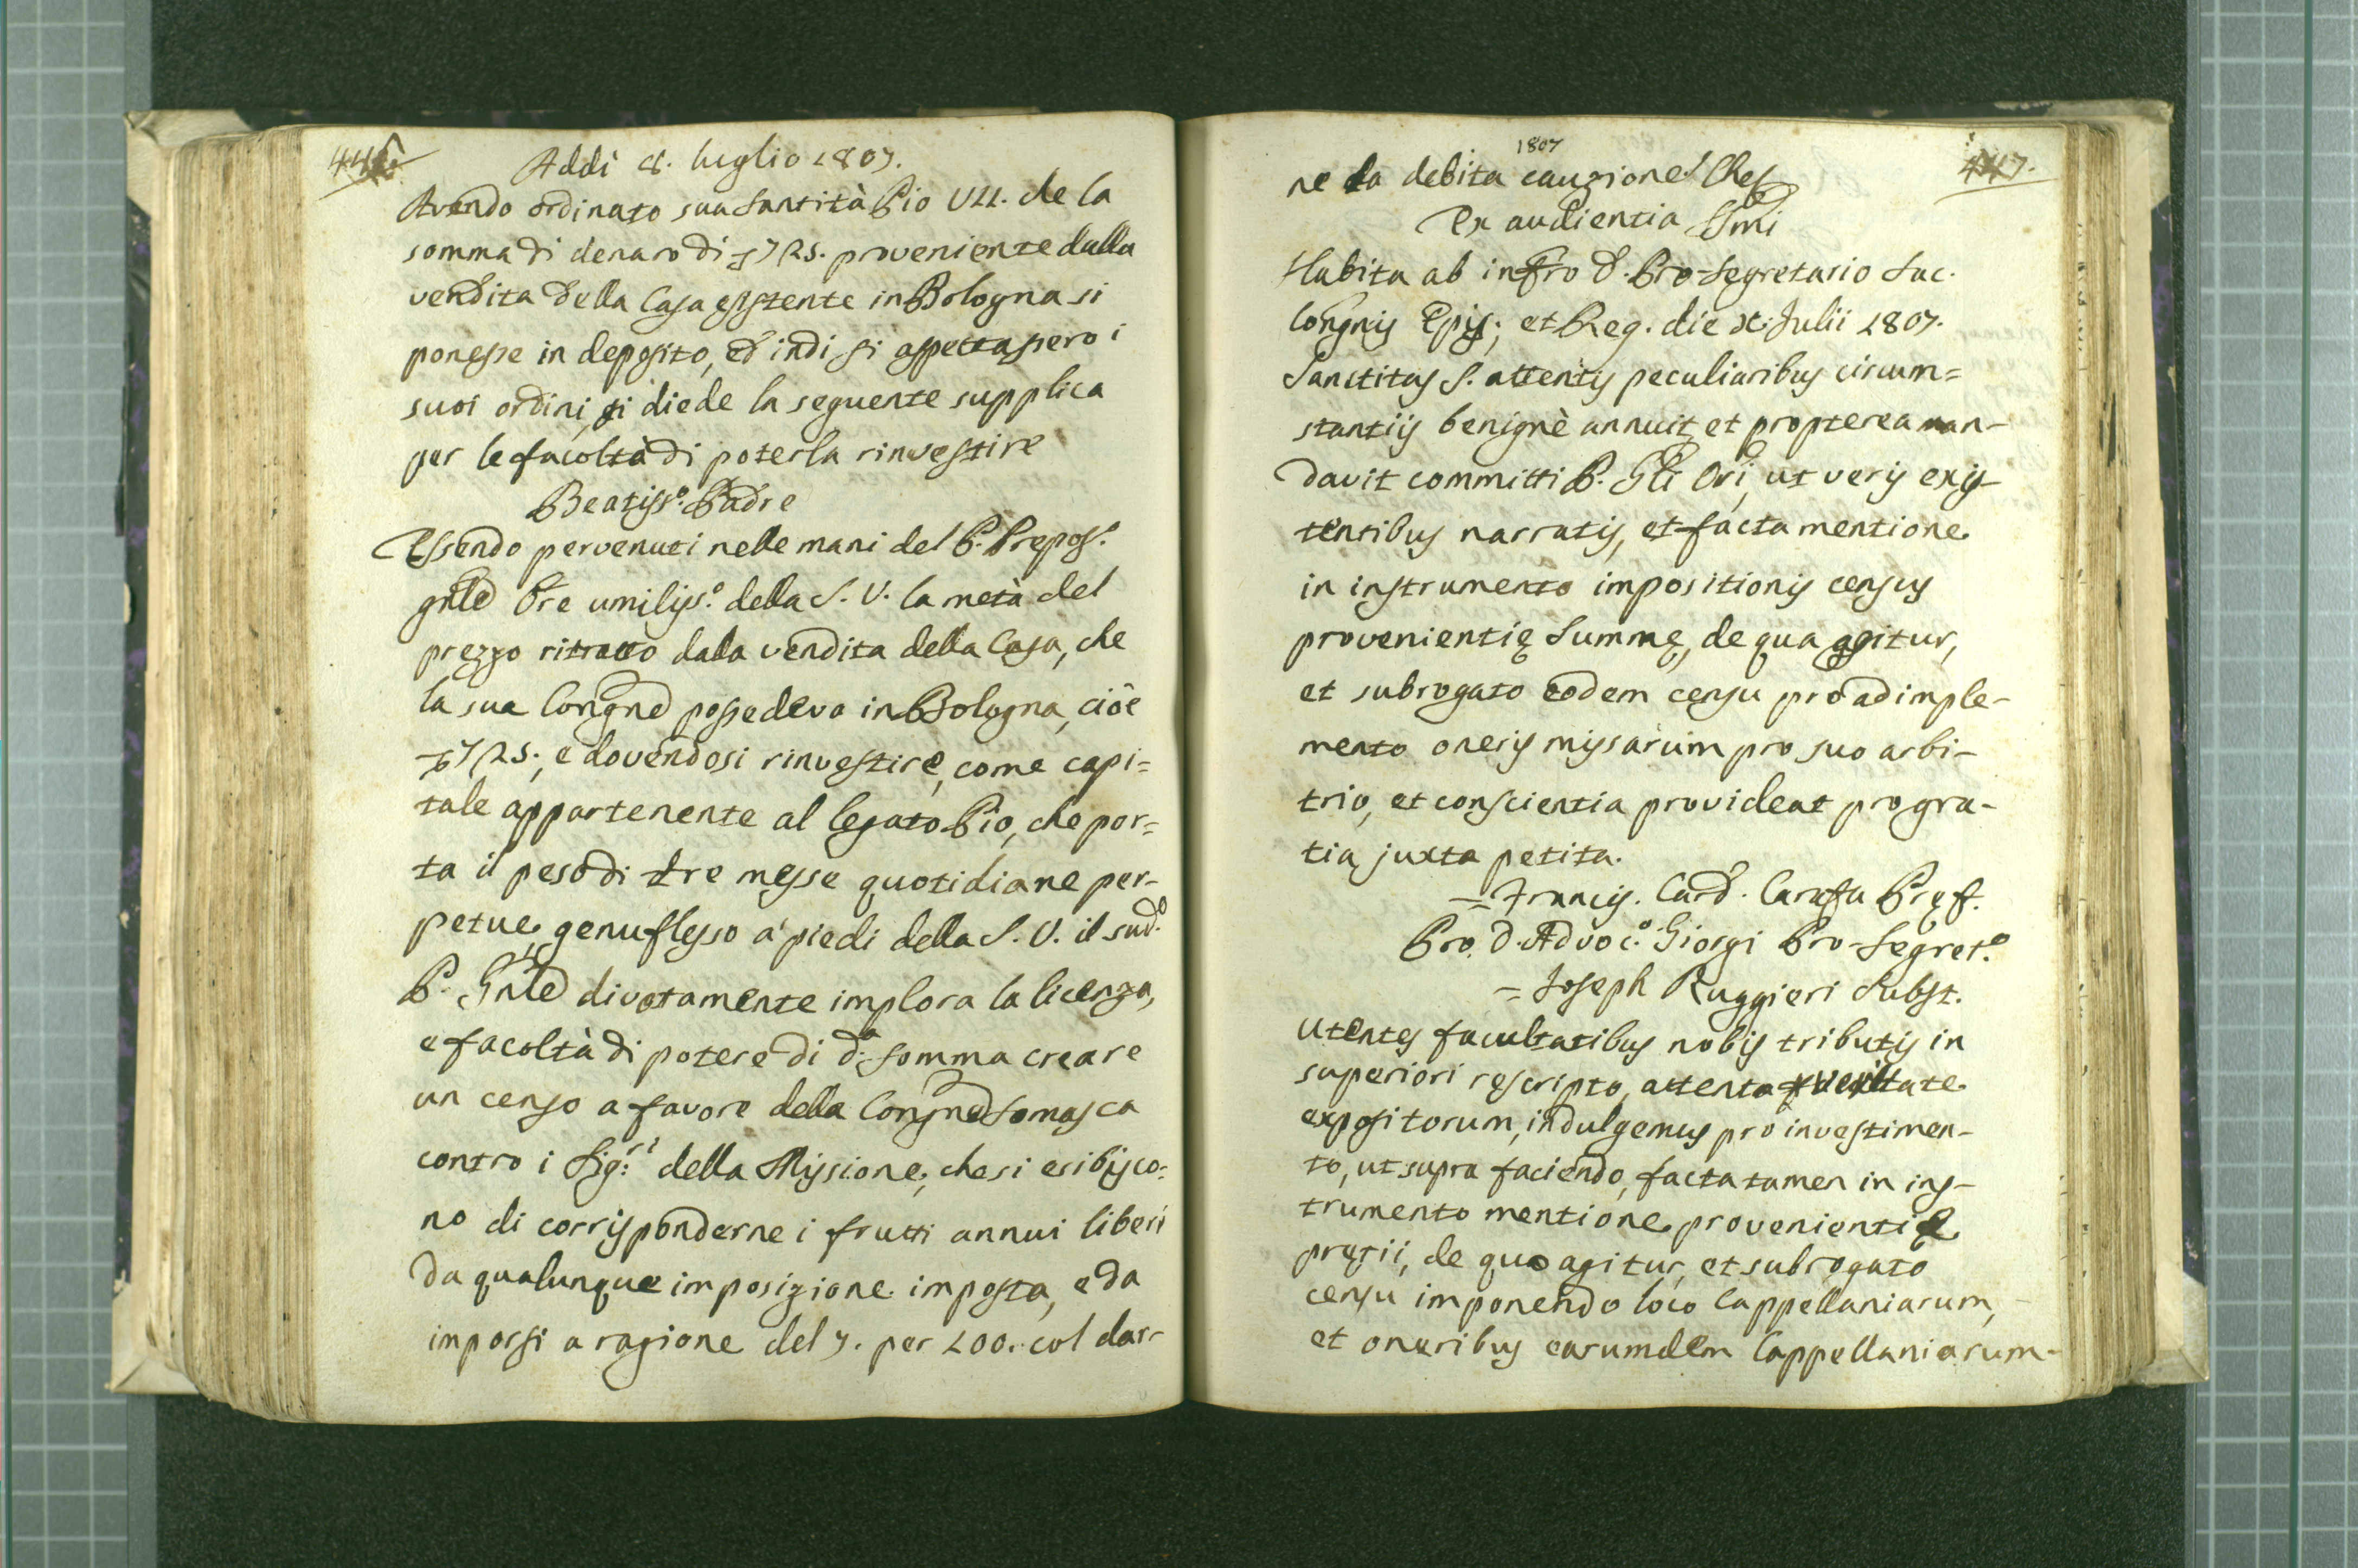 446.
Addì 8. luglio 1807.
Avendo ordinato sua Santità Pio VII. che la
somma di denaro di 7125. proveniente dalla
vendita della Casa esistente in Bologna si
ponesse in deposito, ed indi si aspettassero i
suoi ordini, si diede la seguente supplica
per le facoltà di poterla rinvestire
Beatiss.º Padre
Essendo pervenuti nelle mani del P. Prepos.º
gnle Ore umiliss.º della S. V. la metà del
prezzo ritratto dalla vendita della Casa, che
la sua Congne possedeva in Bologna, cioè
7125., e dovendosi rinvestire, come capi=
tale appartenente al legato Pio, che por=
ta il peso di tre messe quotidiane per-
petue, genuflesso a' piedi della S. V. il sud.º
P. Gnle divotamente implora la licenza,
e facoltà di potere di d.a somma creare
un censo a favore della Congne Somasca
contro i Sig:ri della Missione, che si esibisco=
no di corrisponderne i frutti annui liberi
da qualunque imposizione imposta, e da
imporsi a ragione del 7. per 100. col dar-
447.
1807
ne la debita cauzione! Che
Ex audientia SSmi
Habita ab infro D. Pro-Segretario Sac.
Congnis Epis; et Reg. die X. Julii 1807.
Sanctitas S. attentis peculiaribus circum=
stantiis benignè annuit, et propterea man-
davit committi P. Gli Ori, ut veris exis-
tentibus narratis, et facta mentione
in instrumento impositionis census
provenientię Summę, de qua agitur,
et subrogato eodem censu pro adimple-
mento oneris missarum pro suo arbi-
trio, et conscientia provideat pro gra-
tia juxta petita.
= Francis. Card. Carafa Pręf.
Pro. D. Advoc.º Giorgi Pro-Segret.º
= Joseph Ruggieri Subst.
Utentes facultatibus nobis tributis in
superiori rescripto, attenta veritate
expositorum, indulgemus pro investimen-
to, ut supra faciendo, facta tamen in ins-
trumento mentione provenientię
pretii, de quo agitur, et subrogato
censu imponendo loco Cappellaniarum,
et oneribus earumdem Cappellaniarum-